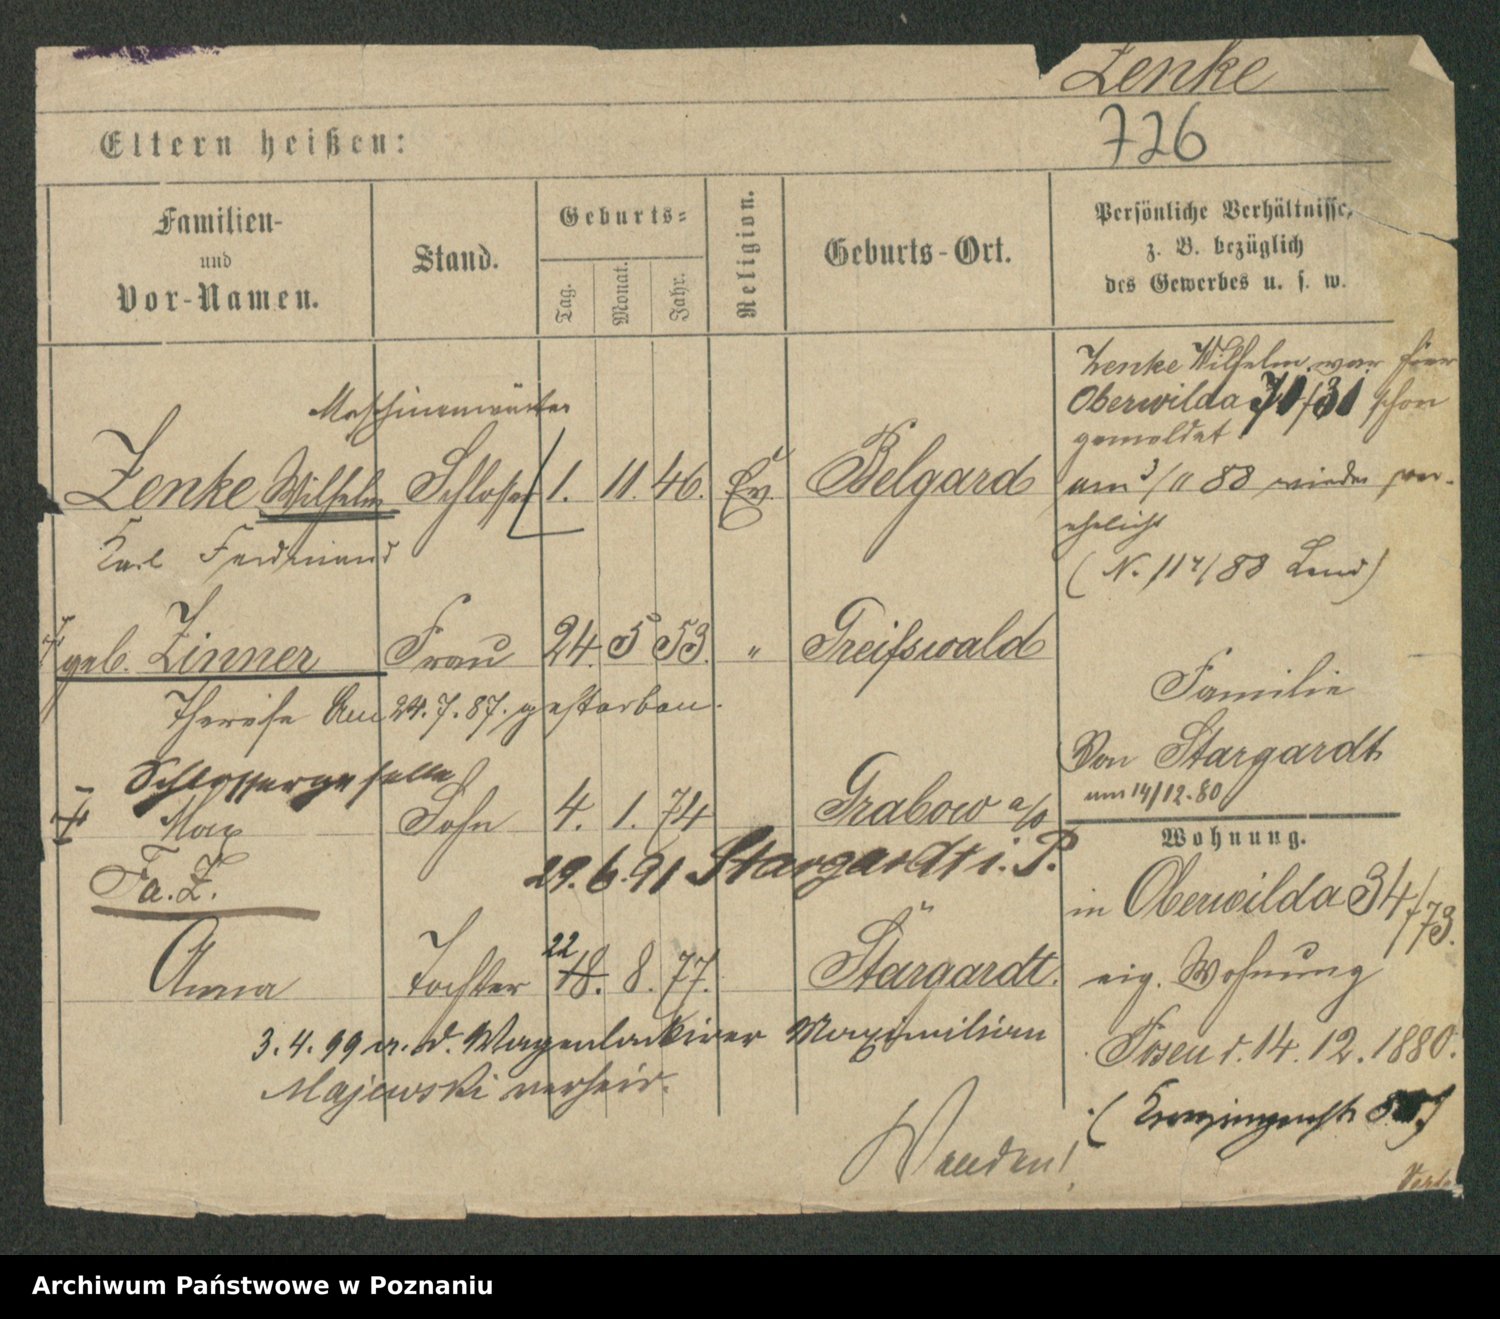 Zenke
726
Eltern heißen:
Familien- und Vor-Namen.
Stand.
Geburts-
Tag.
Monat.
Jahr.
Religion.
Geburts-Ort.
Persönliche Verhältnisse, z. B. bezüglich des Gewerbes u. s. w.
Maschinenwärter
Zenke Wilhelm Schlosser 1. 11. 46. Ev. Belgard
Karl Ferdinand
geb. Zinner Frau 24. 5 53. " Greifswald
Therese Am 24.7.87. gestorben.
Schlossergeselle
Max Sohn 4. 1. 74 Grabow a/o
Fa. Z. 29.6.91 Stargardt i. P.
22
Anna Tochter 18. 8. 77. Stargardt.
3.4.99 m. d. Wagenlackirer Maximilian
Majewski verheir.
Wenden!
Zenke Wilhelm war hier
Oberwilda schon
gemeldet
am 3/11 88 wieder ver-
ehelicht
Familie
Von Stargardt
am 14/12.80
Wohnung.
in Oberwilda 34/73.
eig. Wohnung
Posen d. 14. 12. 1880.